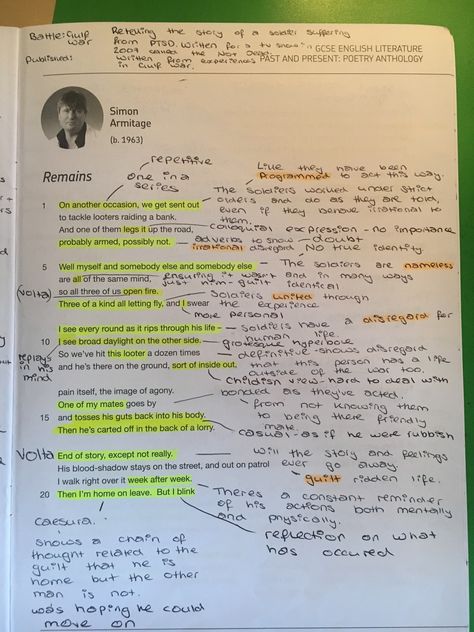 Battle: Gulf war
Retelling the story of a soldier suffering
from PTSD. Written for a tv show in
2007 called the Not Dead.
Published:
Written from experiences
in Gulf War.
GCSE ENGLISH LITERATURE
PAST AND PRESENT: POETRY ANTHOLOGY
Simon
Armitage
(b. 1963)
repetitive
Like they have been
Programmed to act this way.
Remains
one in a
series
The soldiers worked under strict
orders and do as they are told,
even if they behave irrational to
them.
1 On another occasion, we get sent out
to tackle looters raiding a bank.
And one of them legs it up the road,
colloquial expression - no importance
probably armed, possibly not.
adverbs to show doubt
irrational disregard No true identity
5 Well myself and somebody else and somebody else
The soldiers are nameless
are all of the same mind,
ensuring it wasn't and in many ways
just him - guilt identical
so all three of us open fire.
(volta)
Soldiers united through
the experience
Three of a kind all letting fly, and I swear
more personal
I see every round as it rips through his life –
soldiers have a disregard for
human life
10 I see broad daylight on the other side.
grotesque hyperbole
So we've hit this looter a dozen times
definitive - shows disregard
that this person has a life
outside of the war too.
replays
in his
mind
and he's there on the ground, sort of inside out,
childish view - hard to deal with
pain itself, the image of agony.
bonded as they've acted.
One of my mates goes by
from not knowing them
to being there friendly
mate.
15 and tosses his guts back into his body.
Then he's carted off in the back of a lorry.
casual - as if he were rubbish
Volta
End of story, except not really.
will the story and feelings
ever go away.
His blood-shadow stays on the street, and out on patrol
I walk right over it week after week.
guilt ridden life.
20 Then I'm home on leave. But I blink
Theres a constant reminder
of his actions both mentally
and physically.
reflection on what
has occured
caesura.
shows a chain of
thought related to the
guilt that he is
home but the other
man is not.
was hoping he could
move on